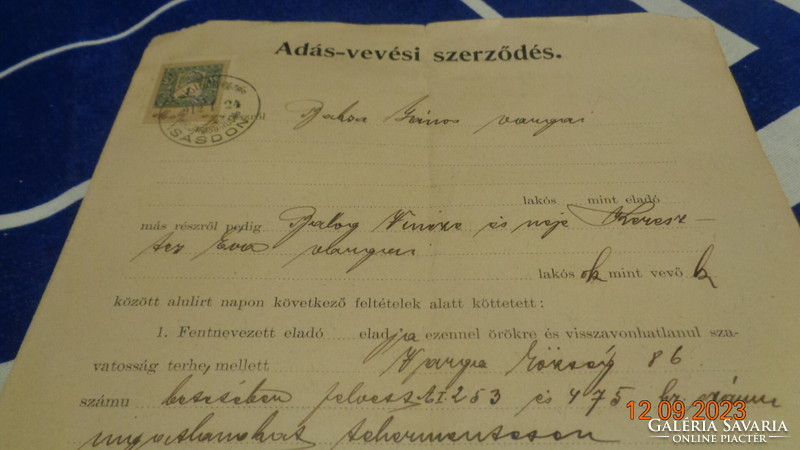 Adás-vevési szerződés.
24
SÁSDON
részről Baksa János vargai
lakós mint eladó
más részről pedig Balog Vincze és neje Keresz-
tes Éva vargai
lakós ok mint vevő k
között alulirt napon következő feltételek alatt köttetett:
1. Fentnevezett eladó eladja ezennel örökre és visszavonhatlanul sza-
vatosság terhe mellett Varga község 86
számu betétében felvett 253 és 475 hr. számu
ingatlanokat tehermentesen
12 09 2023
GALÉRIA SAVARIA
ONLINE PIACTÉR